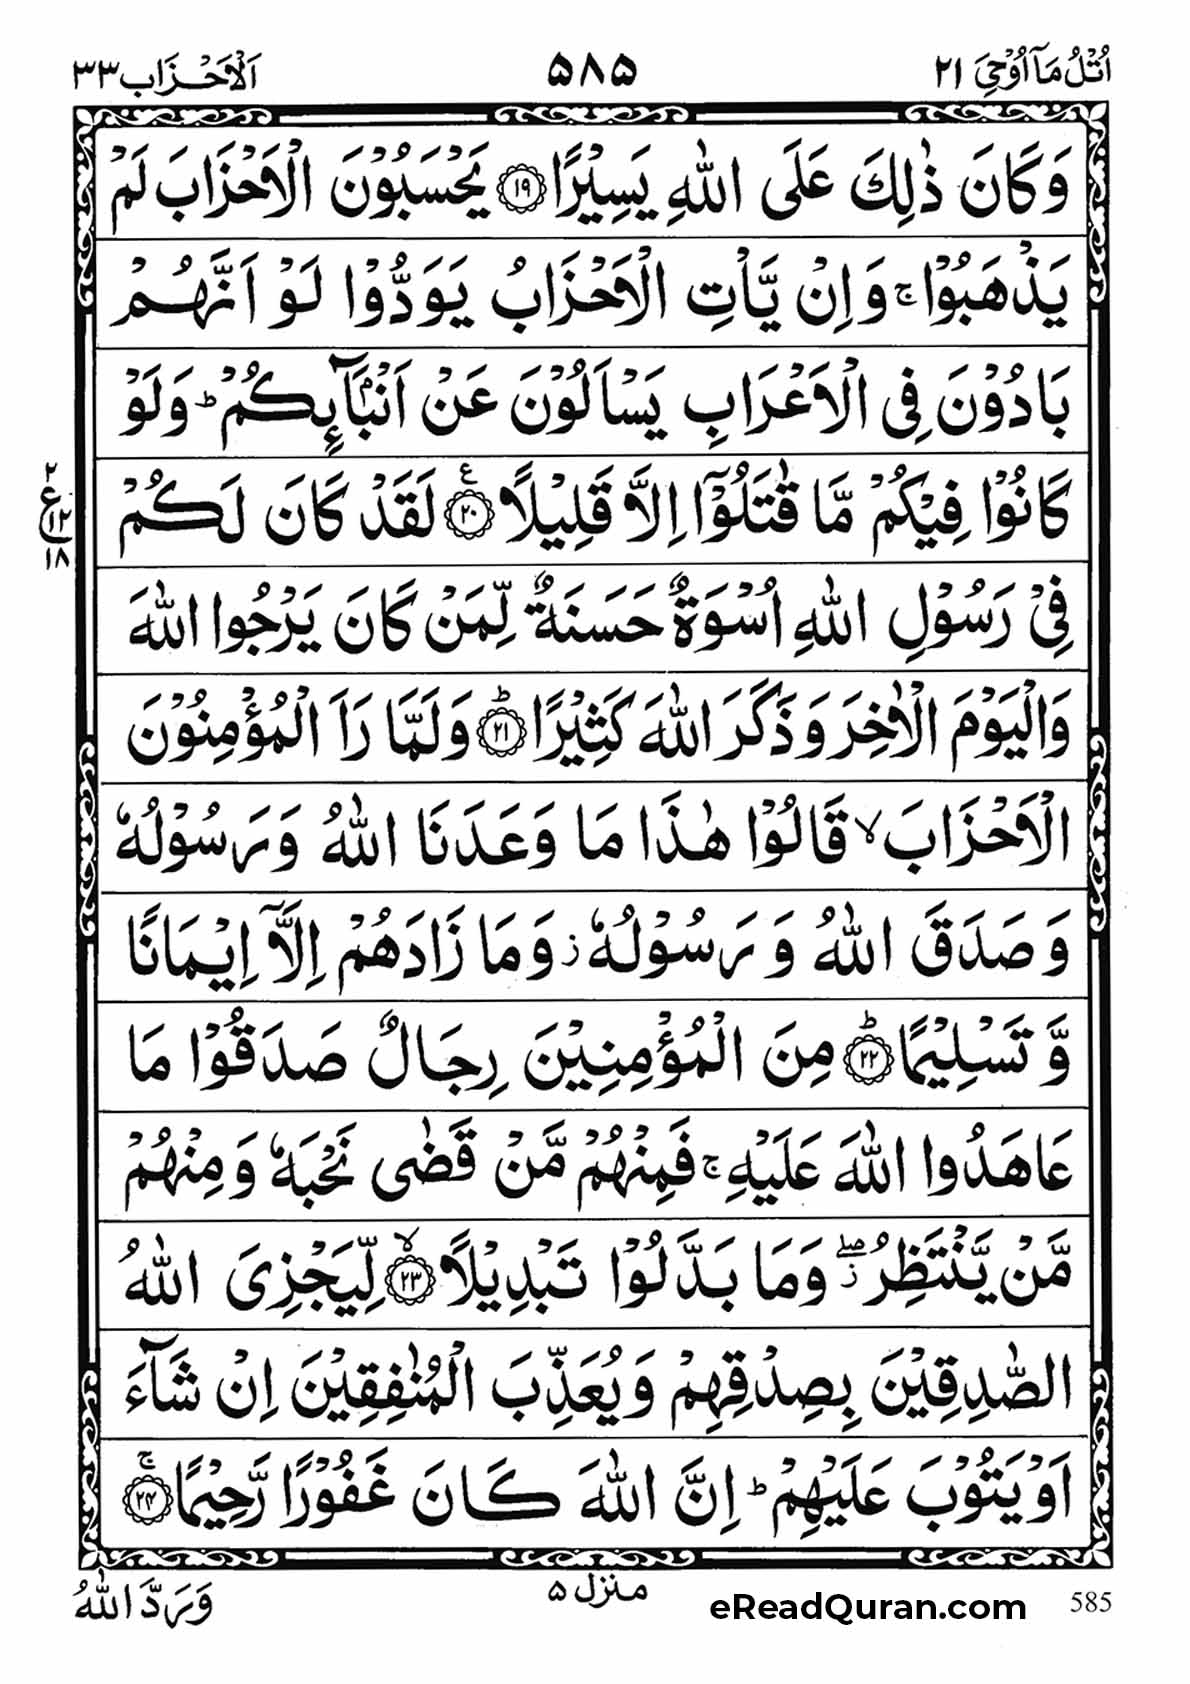 اُتْلُ مَآ اُوْحِیَ ۲۱
۵۸۵
اَلْاَحْزَاب ۳۳
وَكَانَ ذٰلِكَ عَلَى اللّٰهِ يَسِيْرًا ۝۱۹ يَحْسَبُوْنَ الْاَحْزَابَ لَمْ
يَذْهَبُوْا ۚ وَاِنْ يَّاْتِ الْاَحْزَابُ يَوَدُّوْا لَوْ اَنَّهُمْ
بَادُوْنَ فِى الْاَعْرَابِ يَسْاَلُوْنَ عَنْ اَنْۢبَآىِٕكُمْ ؕ وَلَوْ
كَانُوْا فِيْكُمْ مَّا قٰتَلُوْۤا اِلَّا قَلِيْلًا ۝۲۰ ع لَقَدْ كَانَ لَكُمْ
۲
ع
۱۲
۱۸
فِىْ رَسُوْلِ اللّٰهِ اُسْوَةٌ حَسَنَةٌ لِّمَنْ كَانَ يَرْجُوا اللّٰهَ
وَالْيَوْمَ الْاٰخِرَ وَذَكَرَ اللّٰهَ كَثِيْرًا ؕ ۝۲۱ وَلَمَّا رَاَ الْمُؤْمِنُوْنَ
الْاَحْزَابَ ۙ قَالُوْا هٰذَا مَا وَعَدَنَا اللّٰهُ وَرَسُوْلُهٗ
وَصَدَقَ اللّٰهُ وَرَسُوْلُهٗ ز وَمَا زَادَهُمْ اِلَّاۤ اِيْمَانًا
وَّتَسْلِيْمًا ؕ ۝۲۲ مِنَ الْمُؤْمِنِيْنَ رِجَالٌ صَدَقُوْا مَا
عَاهَدُوا اللّٰهَ عَلَيْهِ ۚ فَمِنْهُمْ مَّنْ قَضٰى نَحْبَهٗ وَمِنْهُمْ
مَّنْ يَّنْتَظِرُ ۖ ز وَمَا بَدَّلُوْا تَبْدِيْلًا ۙ ۝۲۳ لِّيَجْزِىَ اللّٰهُ
الصّٰدِقِيْنَ بِصِدْقِهِمْ وَيُعَذِّبَ الْمُنٰفِقِيْنَ اِنْ شَآءَ
اَوْ يَتُوْبَ عَلَيْهِمْ ؕ اِنَّ اللّٰهَ كَانَ غَفُوْرًا رَّحِيْمًا ۚ ۝۲۴
وَرَدَّ اللّٰهُ
منزل ۵
eReadQuran.com
585